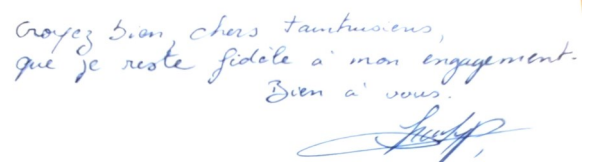 Croyez bien, chers
que je reste fidèle à mon engagement.
Bien à vous.